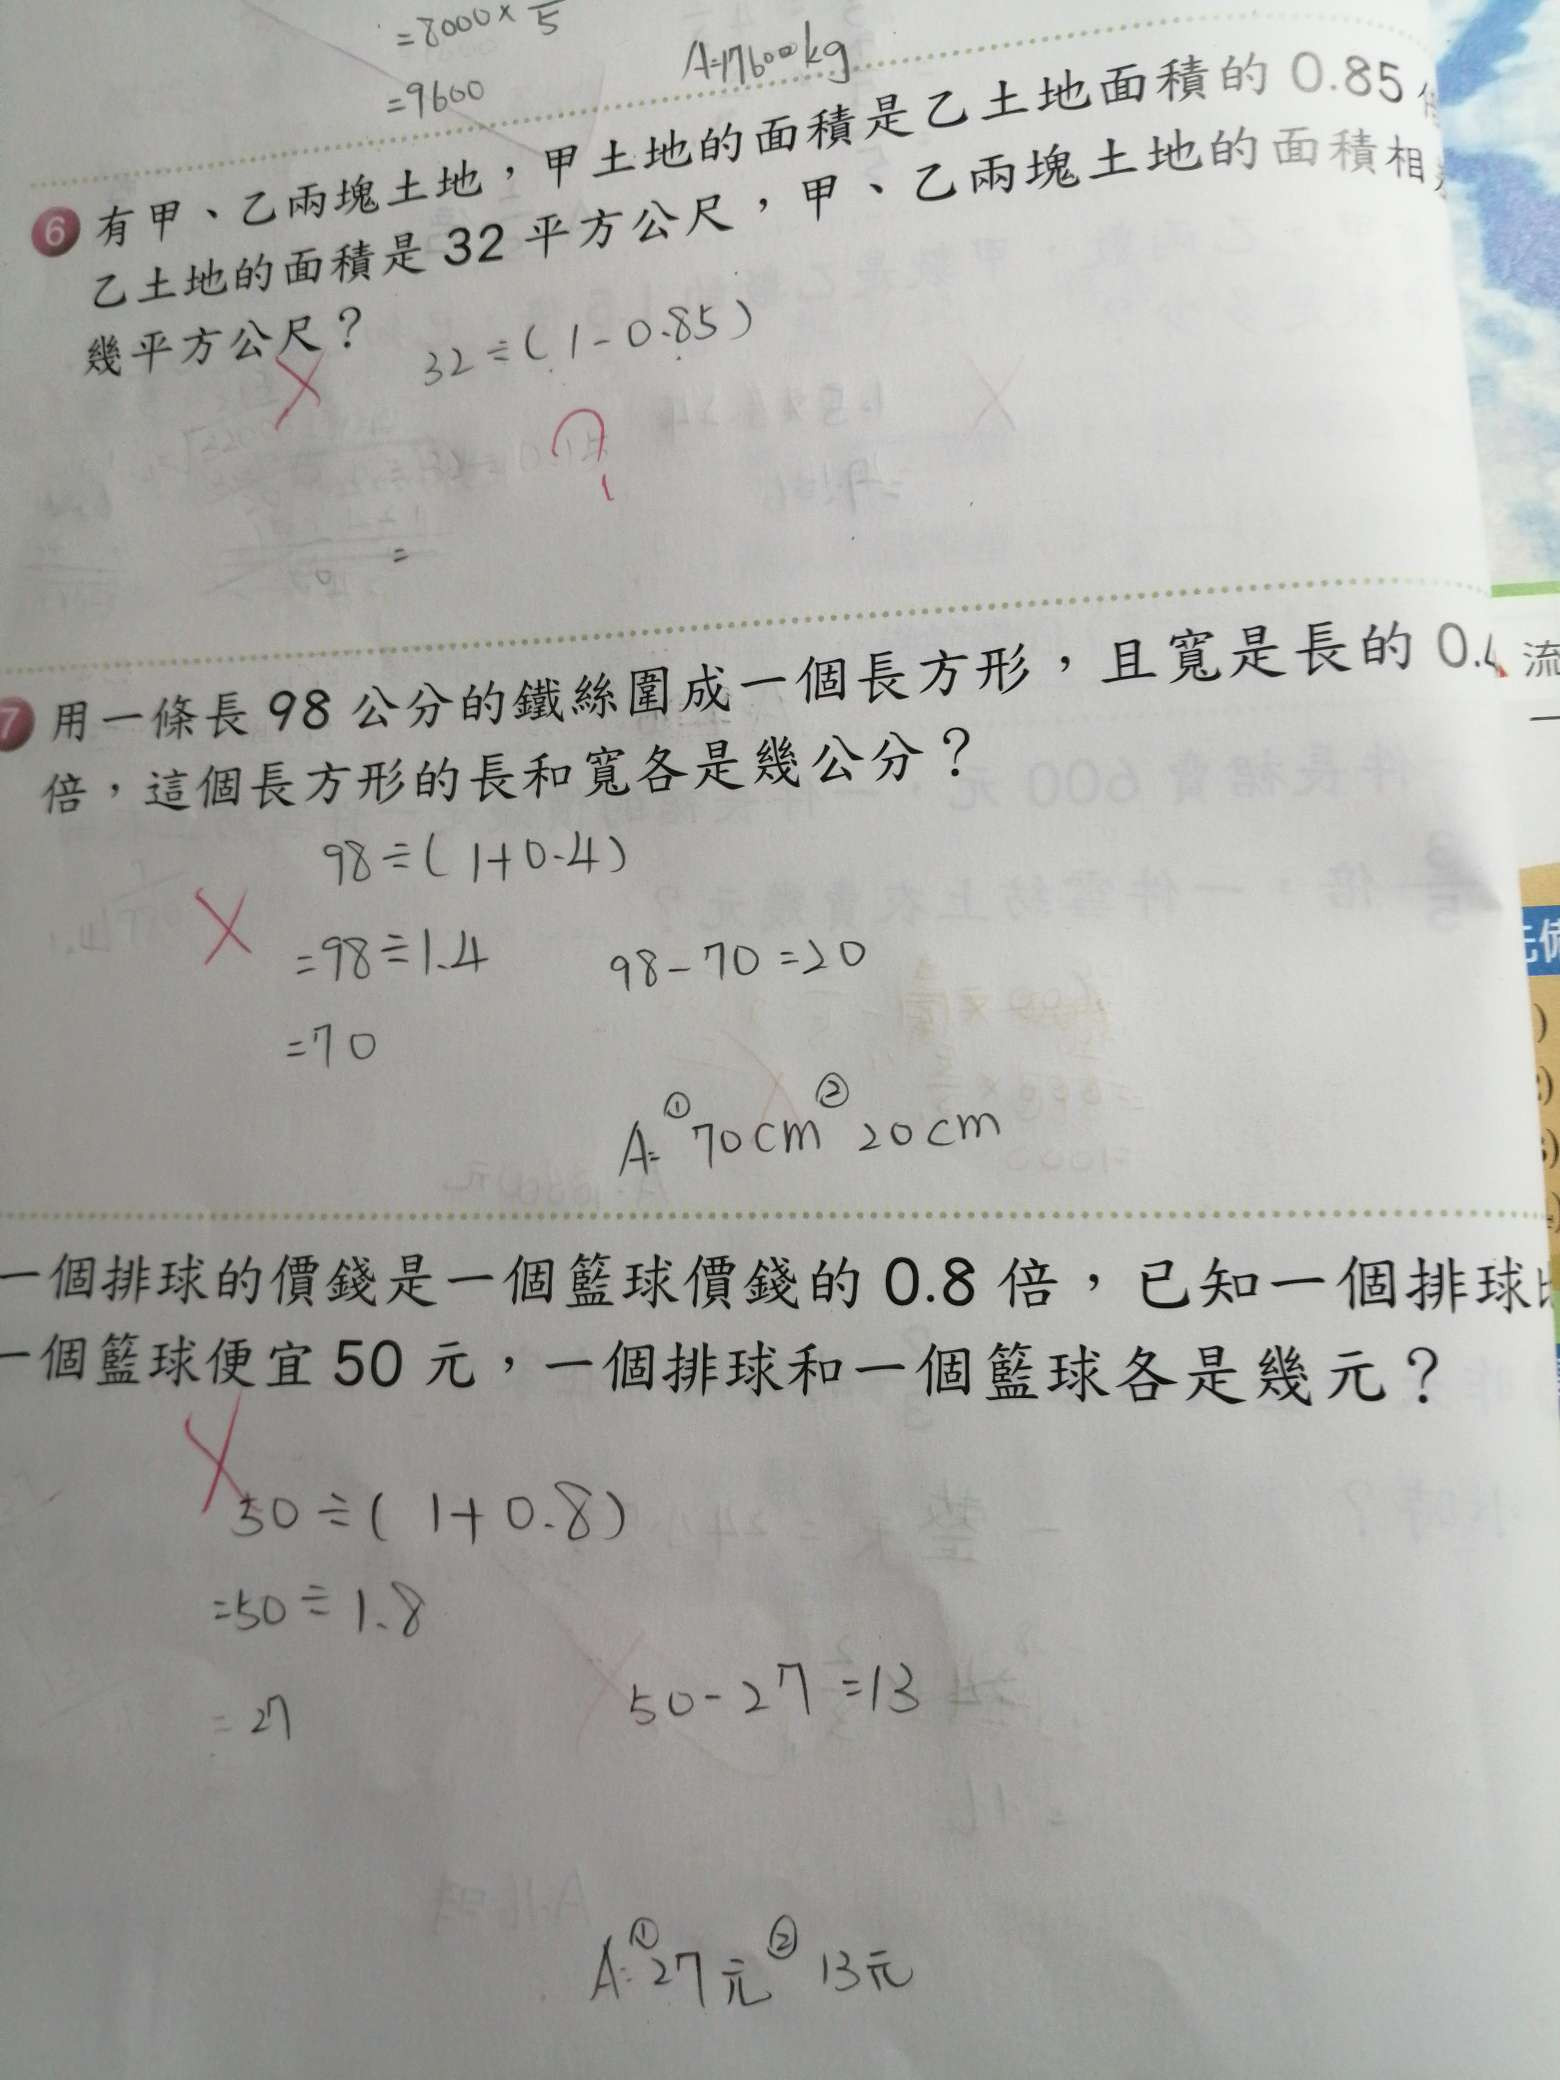 =8000×
5
=9600
A=17600kg
6 有甲、乙兩塊土地，甲土地的面積是乙土地面積的 0.85
乙土地的面積是 32 平方公尺，甲、乙兩塊土地的面積相
幾平方公尺？
32÷(1-0.85)
=
7 用一條長 98 公分的鐵絲圍成一個長方形，且寬是長的 0.4
倍，這個長方形的長和寬各是幾公分？
98÷(1+0.4)
=98÷1.4
98-70=20
=70
A=①70cm②20cm
一個排球的價錢是一個籃球價錢的 0.8 倍，已知一個排球比
一個籃球便宜 50 元，一個排球和一個籃球各是幾元？
50÷(1+0.8)
=50÷1.8
=27
50-27=13
A:①27元②13元
流